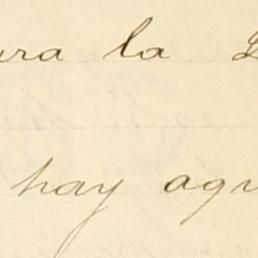 ura la
hay aqu